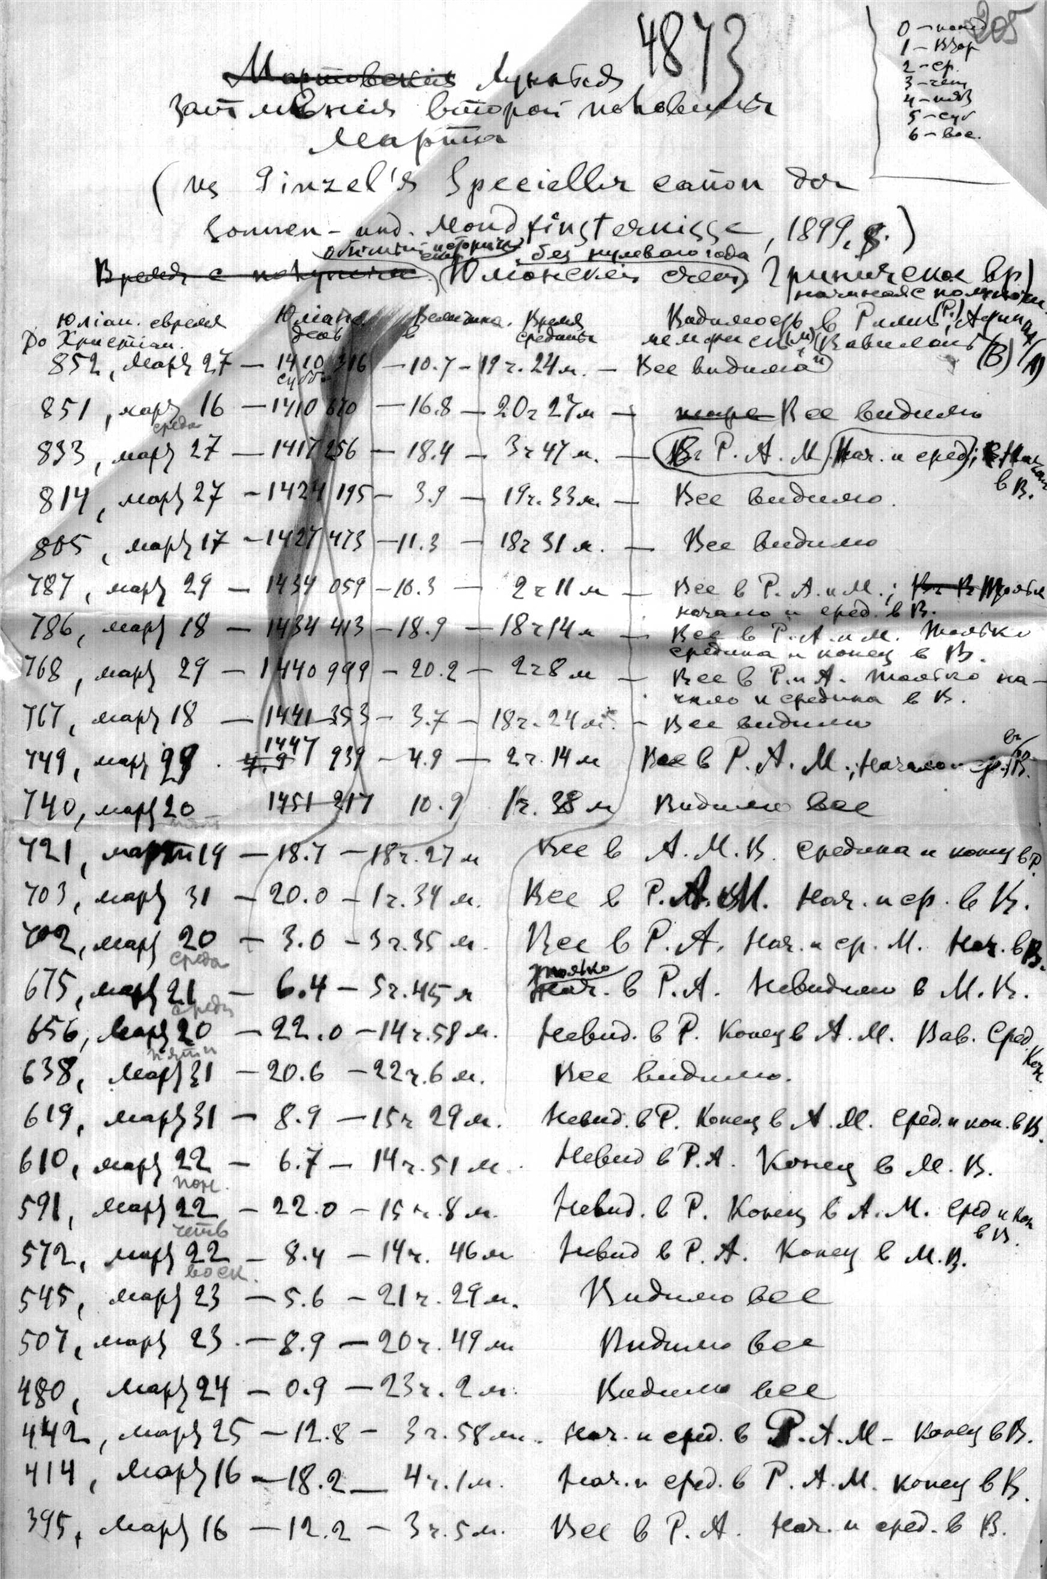 205
4873
0 – понед
1 – втор
2 – ср.
3 – чет
4 – пят
5 – суб
6 – вос.
Мартовскія Лунныя
затмѣнія второй половины
Марта
(из Ginzel's Specieller canon der
Sonnen- und Mondfinsternisse, 1899, g.)
обычный историч. счет без нулевого года
Время с полуночи (Юлианский счет) Гриническое вр.
начиная с полуночи.
Юліан. время Юлиан. Величина Время Видимость в Риме (Р), Афинах (А)
До Христіан. день в средины Мемфисе (М) Вавилоне (В)
852, март 27 – 1410 316 – 10.7 – 19 ч. 24 м. – Все видимо
суб
851, март 16 – 1410 670 – 16.8 – 20 ч 27 м – Все видимо
среда
833, март 27 – 1417 256 – 18.4 – 3 ч 47 м. – В Р. А. М. Нач. и сред.; Начало
в В.
814, март 27 – 1424 195 – 3.9 – 19 ч. 33 м. – Все видимо.
805, март 17 – 1427 473 – 11.3 – 18 ч 31 м. – Все видимо
787, март 29 – 1434 059 – 10.3 – 2 ч 11 м – Все в Р. А. и М.; Только
начало и сред. в В.
786, март 18 – 1434 413 – 18.9 – 18 ч 14 м – Все в Р. А. и М. Только
средина и конец в В.
768, март 29 – 1440 999 – 20.2 – 2 ч 8 м – Все в Р. и А. Только на-
чало и средина в В.
767, март 18 – 1441 353 – 3.7 – 18 ч. 24 м. – Все видимо
749, март 29 1447 939 – 4.9 – 2 ч. 14 м Все в Р. А. М., Начало и ср. в В.
740, март 20 1451 217 10.9 1 ч. 38 м Видимо все
721, март 19 – 18.7 – 18 ч. 27 м Все в А. М. В. средина и конец в Р.
703, март 31 – 20.0 – 1 ч. 34 м. Все в Р. А. и М. Нач. и ср. в В.
702, март 20 – 3.0 – 3 ч. 35 м. Все в Р. А. Нач. и ср. М. Нач. в В.
среда
675, март 21 – 6.4 – 5 ч. 45 м Только нач. в Р. А. Невидимо в М. В.
среда
656, март 20 – 22.0 – 14 ч. 58 м. Невид. в Р. Конец в А. М. Вав. Сред
Кон.
пятн
638, март 31 – 20.6 – 22 ч. 6 м. Все видимо.
619, март 31 – 8.9 – 15 ч 29 м. Невид. в Р. Конец в А. М. Сред. и кон. в В.
610, март 22 – 6.7 – 14 ч. 51 м. Невид в Р. А. Конец в М. В.
пон.
591, март 22 – 22.0 – 15 ч. 8 м. Невид. в Р. Конец в А. М. Сред и кон
в В.
четв
572, март 22 – 8.4 – 14 ч. 46 м Невид в Р. А. Конец в М. В.
воск.
545, март 23 – 5.6 – 21 ч. 29 м. Видимо все
507, март 23. – 8.9 – 20 ч. 49 м Видимо все
480, март 24 – 0.9 – 23 ч. 2 м. Видимо все
442, март 25 – 12.8 – 3 ч. 58 м. Нач. и сред. в Р. А. М – Конец в В.
414, март 16 – 18.2 – 4 ч. 1 м. Нач. и сред. в Р. А. М. конец в В.
395, март 16 – 12.2 – 3 ч. 5 м. Все в Р. А. Нач. и сред. в В.